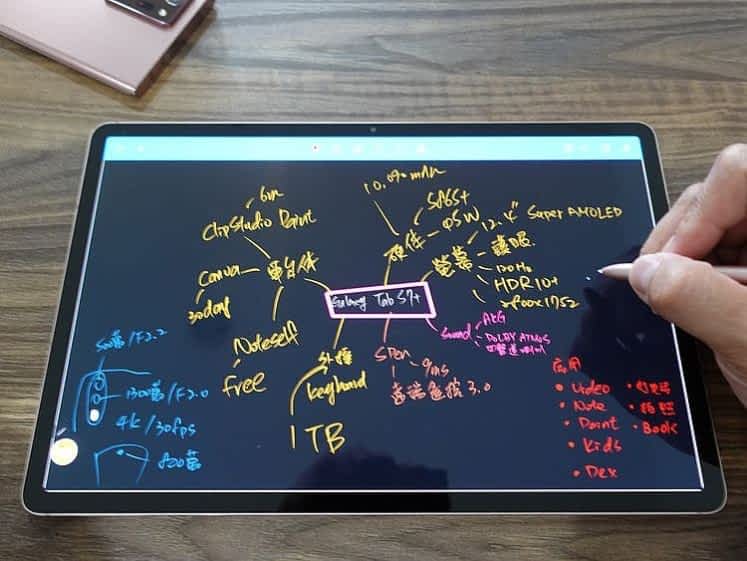 10,090 mAh
6m
Clip Studio Paint
S865+
硬件
45W
12.4" Super AMOLED
螢幕
護眼
120Hz
HDR10+
2800x1752
Canva
30day
軟件
Galaxy Tab S7+
Sound
AKG
DOLBY ATMOS
Noteself
free
外接
keyboard
1TB
SPen
9ms
遠端遙控 3.0
500萬/F2.2
1300萬/F2.0
4k/30fps
800萬
應用
• Video
• Note
• 拍照
• Paint
• Book
• Kids
• Dex